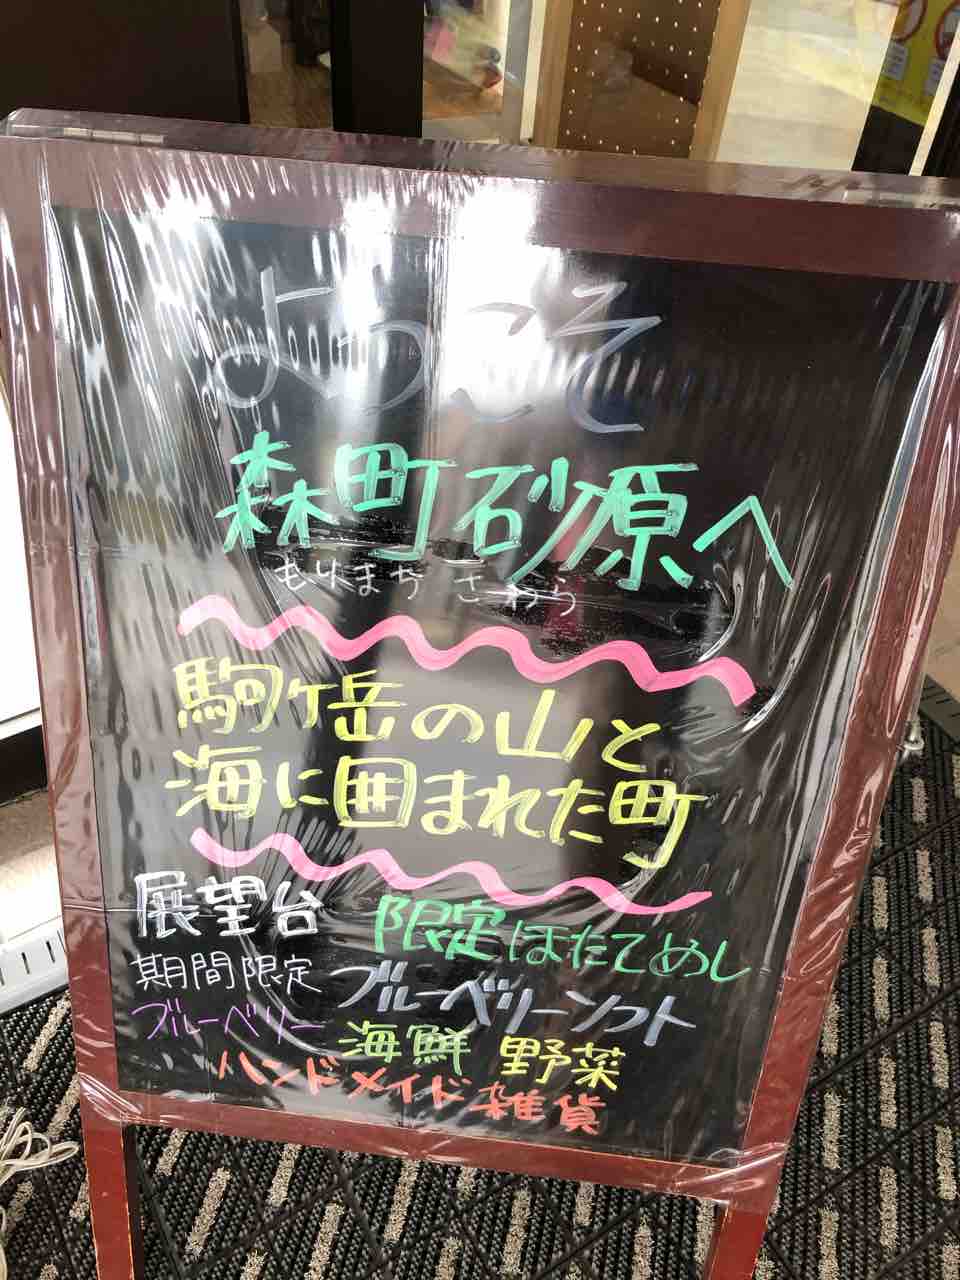 ようこそ
森町砂原へ
もりまち さわら
駒ヶ岳の山と
海に囲まれた町
展望台
限定ほたてめし
期間限定
ブルーベリーソフト
ブルーベリー
海鮮 野菜
ハンドメイド雑貨